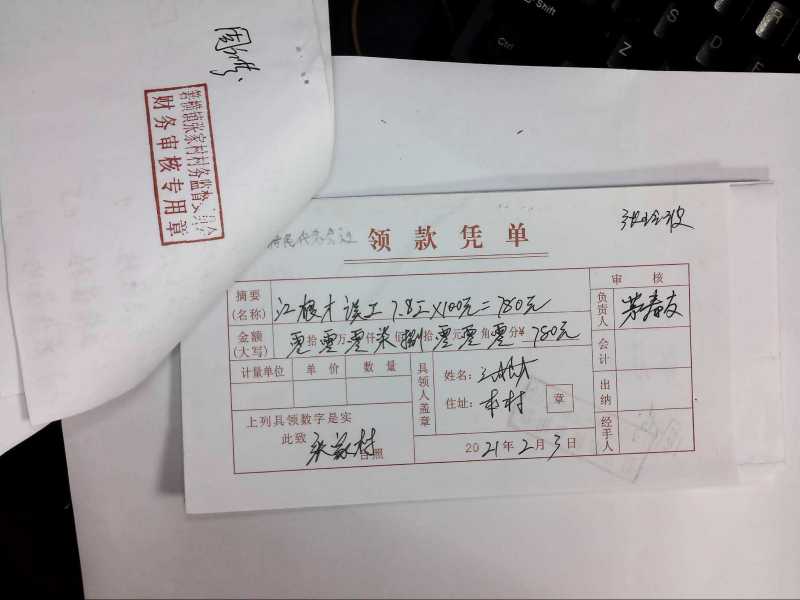 箬横镇张家村村务监督委员会
财务审核专用章
领款凭单
摘要
(名称) 江根才误工 7.8工×100元=780元
金额
(大写) 零拾零万零仟柒佰捌拾零元零角零分¥ 780元
计量单位 单价 数量
上列具领数字是实
此致
张家村 台照
具领人盖章
姓名: 江根才
住址: 本村
章
2021年2月3日
审核
负责人
会计
出纳
经手人
Shift
Ctrl
Z
S
D
R
F